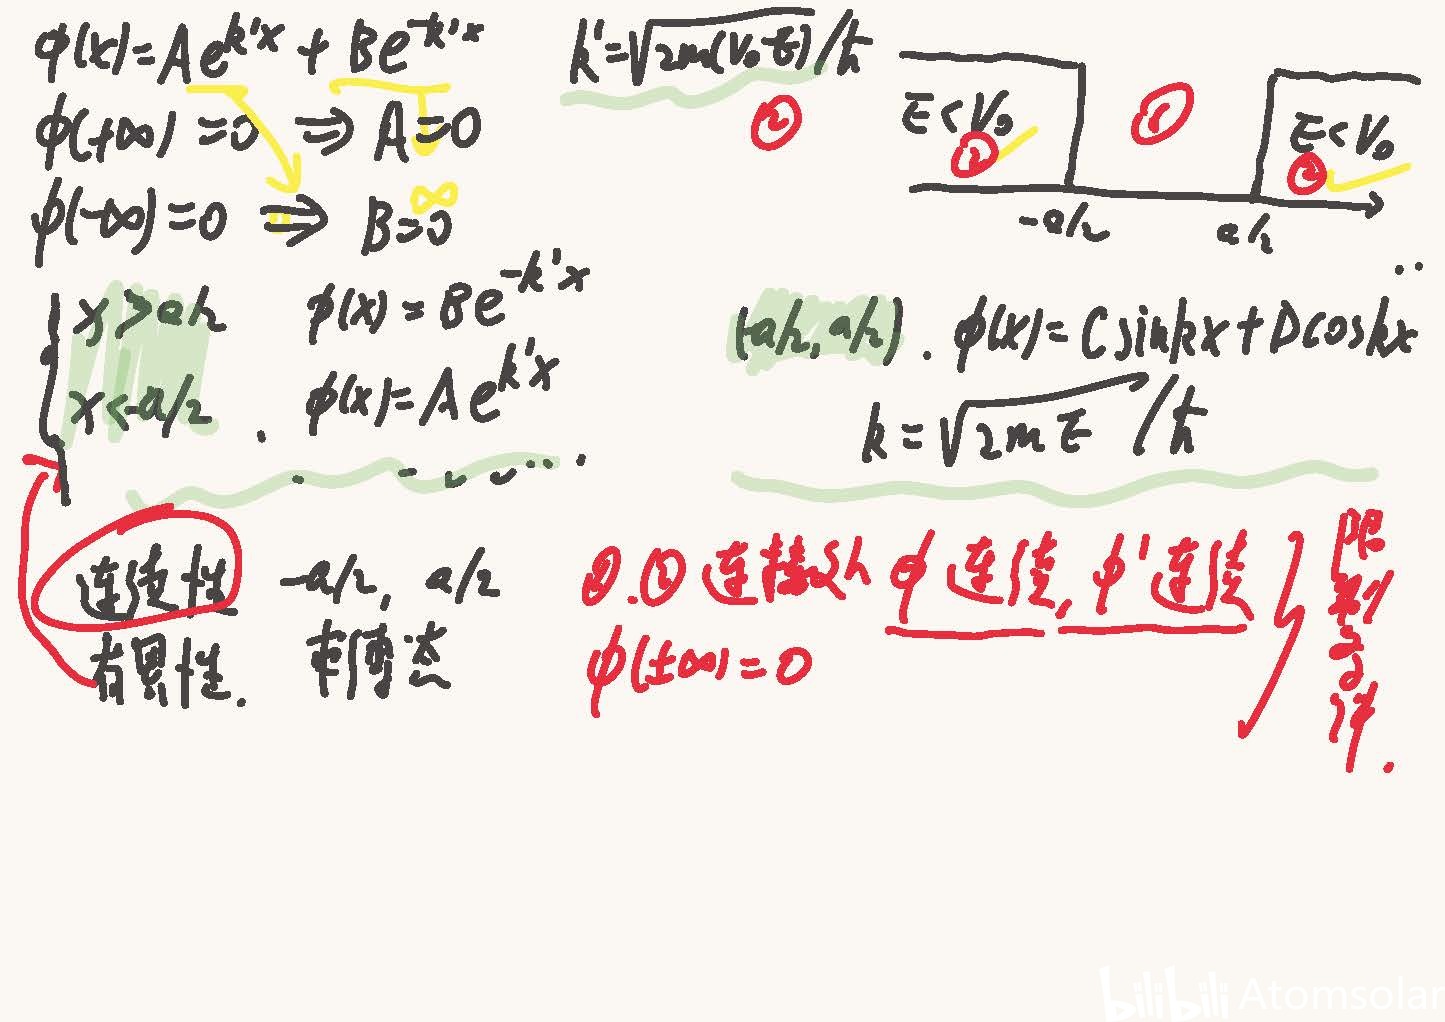 φ(x)=Ae^{k'x}+Be^{-k'x}
k'=√2m(V₀-E)/ħ
②
φ(+∞)=0 ⇒ A=0
φ(-∞)=0 ⇒ B=0
∞
E<V₀ ②
①
E<V₀ ②
-a/2
a/2
x>a/2 φ(x)=Be^{-k'x}
x<-a/2. φ(x)=Ae^{k'x}
(-a/2, a/2). φ(x)=Csinkx+Dcoskx
k=√2mE/ħ
连续性 -a/2, a/2
有界性. 束缚态
①.②连接处 φ连续, φ'连续
φ(±∞)=0
限制条件.
bilibili Atomsolar